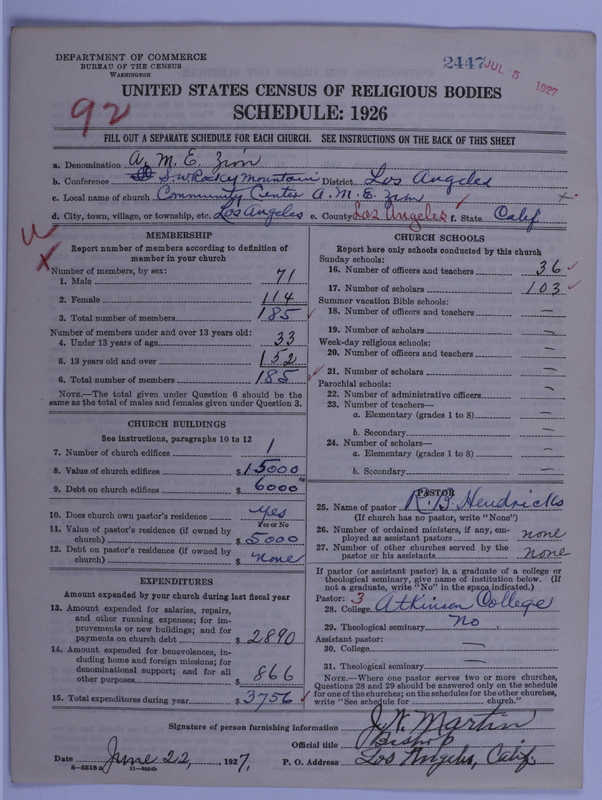 DEPARTMENT OF COMMERCE
BUREAU OF THE CENSUS
WASHINGTON
2447 JUL 5 1927
92
UNITED STATES CENSUS OF RELIGIOUS BODIES
SCHEDULE: 1926
FILL OUT A SEPARATE SCHEDULE FOR EACH CHURCH. SEE INSTRUCTIONS ON THE BACK OF THIS SHEET
a. Denomination A. M. E. Zion
b. Conference S.W. Rocky Mountain District Los Angeles
c. Local name of church Community Center A.M.E. Zion
d. City, town, village, or township, etc. Los Angeles e. County Los Angeles f. State Calif
MEMBERSHIP
Report number of members according to definition of member in your church
Number of members, by sex:
1. Male 71
2. Female 114
3. Total number of members 185
Number of members under and over 13 years old:
4. Under 13 years of age 33
5. 13 years old and over 152
6. Total number of members 185
NOTE.—The total given under Question 6 should be
same as the total of males and females given under Question 3.
CHURCH BUILDINGS
See instructions, paragraphs 10 to 12
7. Number of church edifices 1
8. Value of church edifices $ 15000
9. Debt on church edifices $ 6000
10. Does church own pastor's residence yes
Yes or No
11. Value of pastor's residence (if owned by
church) $ 5000
12. Debt on pastor's residence (if owned by
church) $ none
EXPENDITURES
Amount expended by your church during last fiscal year
13. Amount expended for salaries, repairs,
and other running expenses; for im-
provements or new buildings; and for
payments on church debt $ 2890
14. Amount expended for benevolences, in-
cluding home and foreign missions; for
denominational support; and for all
other purposes $ 866
15. Total expenditures during year $ 3756
CHURCH SCHOOLS
Report here only schools conducted by this church
Sunday schools:
16. Number of officers and teachers 36
17. Number of scholars 103
Summer vacation Bible schools:
18. Number of officers and teachers —
19. Number of scholars —
Week-day religious schools:
20. Number of officers and teachers —
21. Number of scholars —
Parochial schools:
22. Number of administrative officers —
23. Number of teachers—
a. Elementary (grades 1 to 8) —
b. Secondary —
24. Number of scholars—
a. Elementary (grades 1 to 8) —
b. Secondary —
PASTOR
25. Name of pastor R. B. Hendricks
(If church has no pastor, write "None")
26. Number of ordained ministers, if any, em-
ployed as assistant pastors none
27. Number of other churches served by the
pastor or his assistants none
If pastor (or assistant pastor) is a graduate of a college or
theological seminary, give name of institution below. (If
not a graduate, write "No" in the space indicated.)
Pastor: 3
28. College Atkinson College
29. Theological seminary No
Assistant pastor:
30. College —
31. Theological seminary —
NOTE.—Where one pastor serves two or more churches,
Questions 28 and 29 should be answered only on the schedule
for one of the churches; on the schedules for the other churches,
write "See schedule for church."
Signature of person furnishing information J. W. Martin
Official title Bishop
Date June 22, 1927, P. O. Address Los Angeles, Calif.
8—5518a 11—9664b